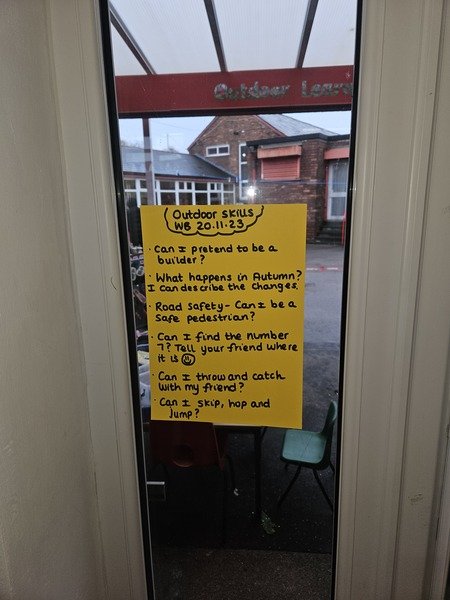 Outdoor Lear
Outdoor Skills
WB 20.11.23
· Can I pretend to be a
builder?
· What happens in Autumn?
I can describe the changes.
· Road safety - Can I be a
safe pedestrian?
· Can I find the number
7? Tell your friend where
it is ☺
· Can I throw and catch
with my friend?
· Can I skip, hop and
jump?